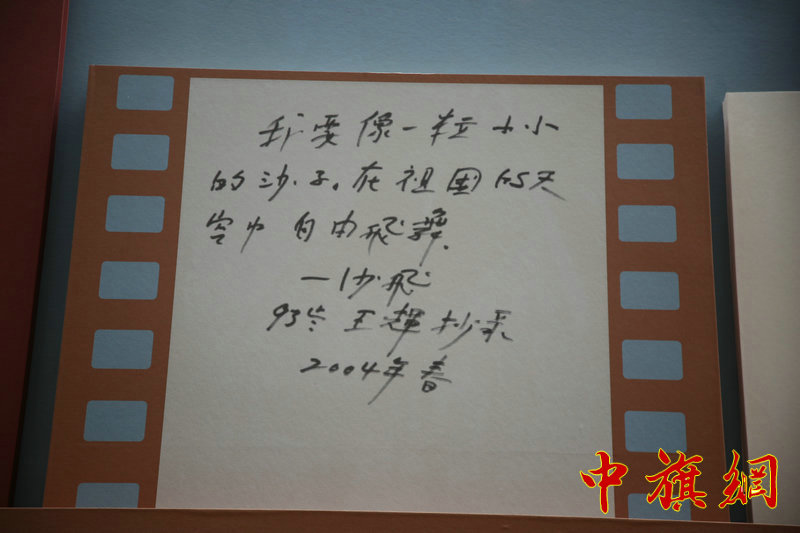 我要像一粒小小
的沙子。在祖国的天
空中自由飞舞.
一沙飞
93岁王辉抄录
2004年春
中旗網